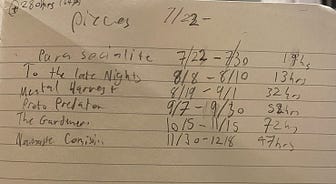 280hrs
pieces 7/22-
Para socialite 7/22 - 7/30 19hs
To the late Nights 8/8 - 8/10 13hrs
Mental Harvest 8/19 - 9/1 32hrs
Proto Predator 9/7 - 9/30 58hrs
The Gardener 10/5 - 11/15 72hrs
11/30 - 12/8 47hrs